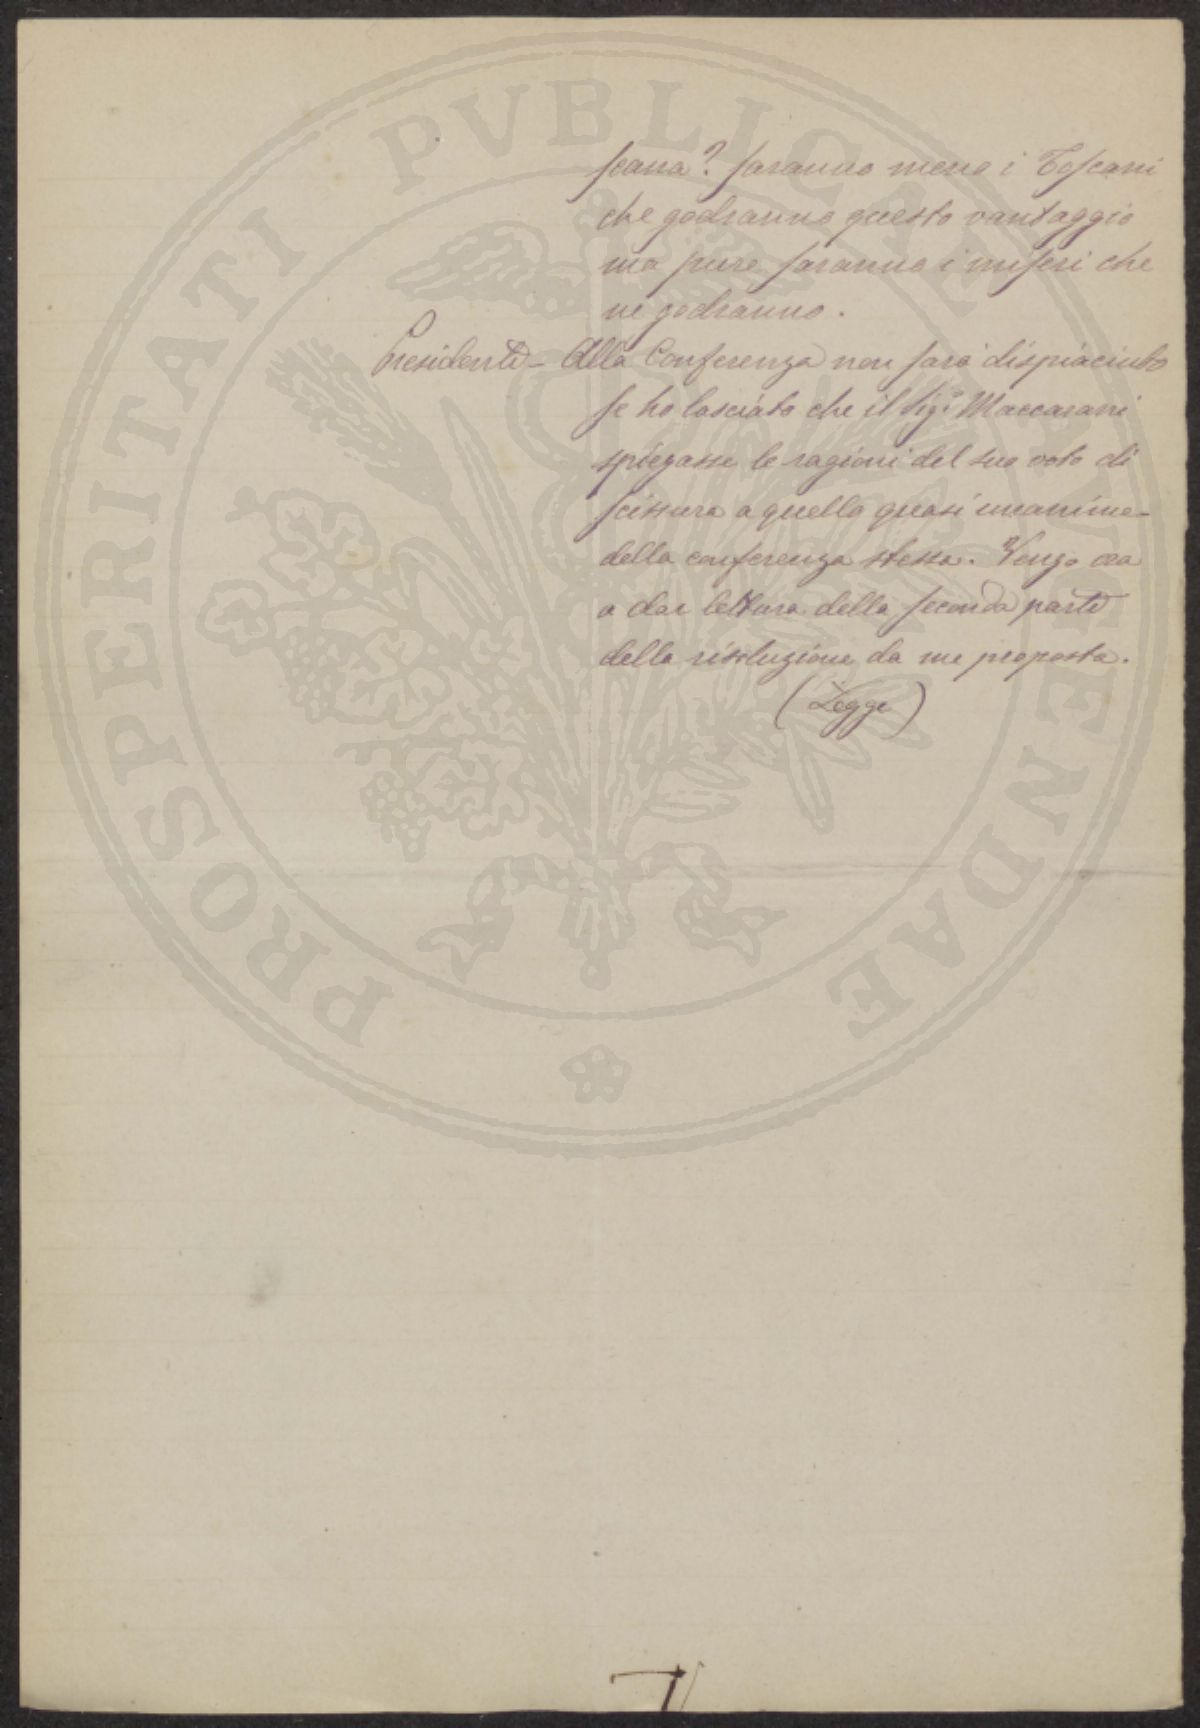 PROSPERITATI PVBLICAE AVGENDAE
scana? saranno meno i Toscani
che godranno questo vantaggio
ma pure saranno i miseri che
ne godranno.
Presidente - Alla Conferenza non sarà dispiaciuto
se ho lasciato che il Sigr Maccarani
spiegasse le ragioni del suo voto di
scissura a quello quasi unanime
della conferenza stessa. Vengo ora
a dar lettura della seconda parte
della risoluzione da me proposta.
(Legge)